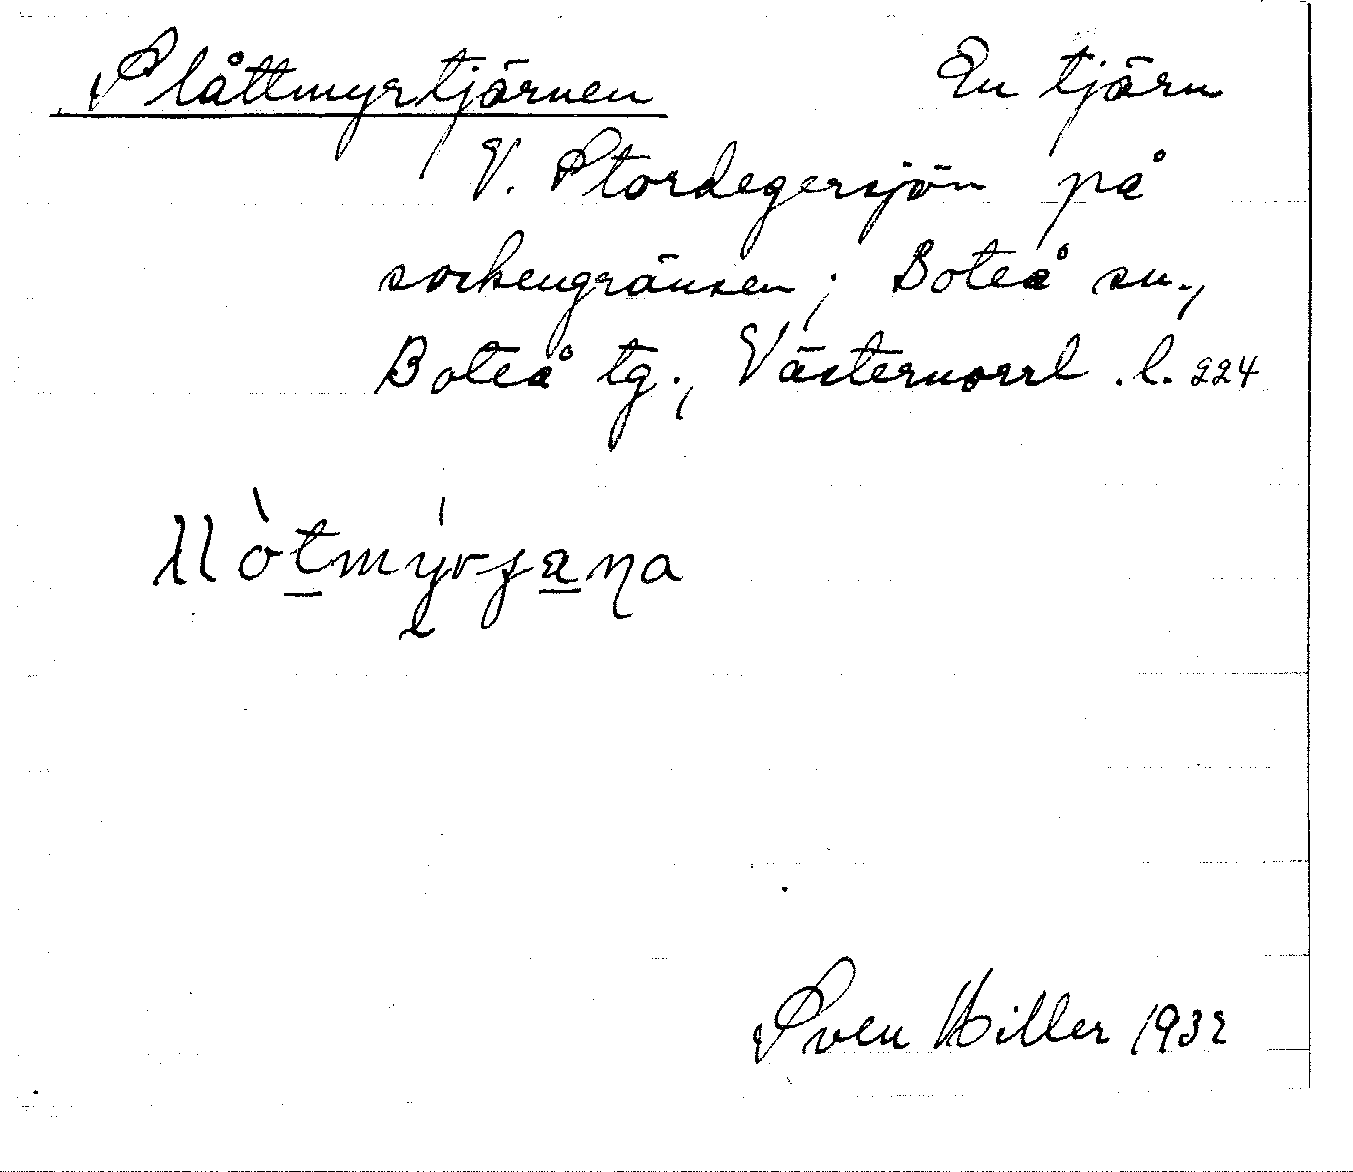 Slåttmyrtjärnen En tjärn
V. Stordegersjön på
sockengränsen; Boteå sn.,
Boteå tg., Västernorrl. l. 224
Sven Hiller 1932